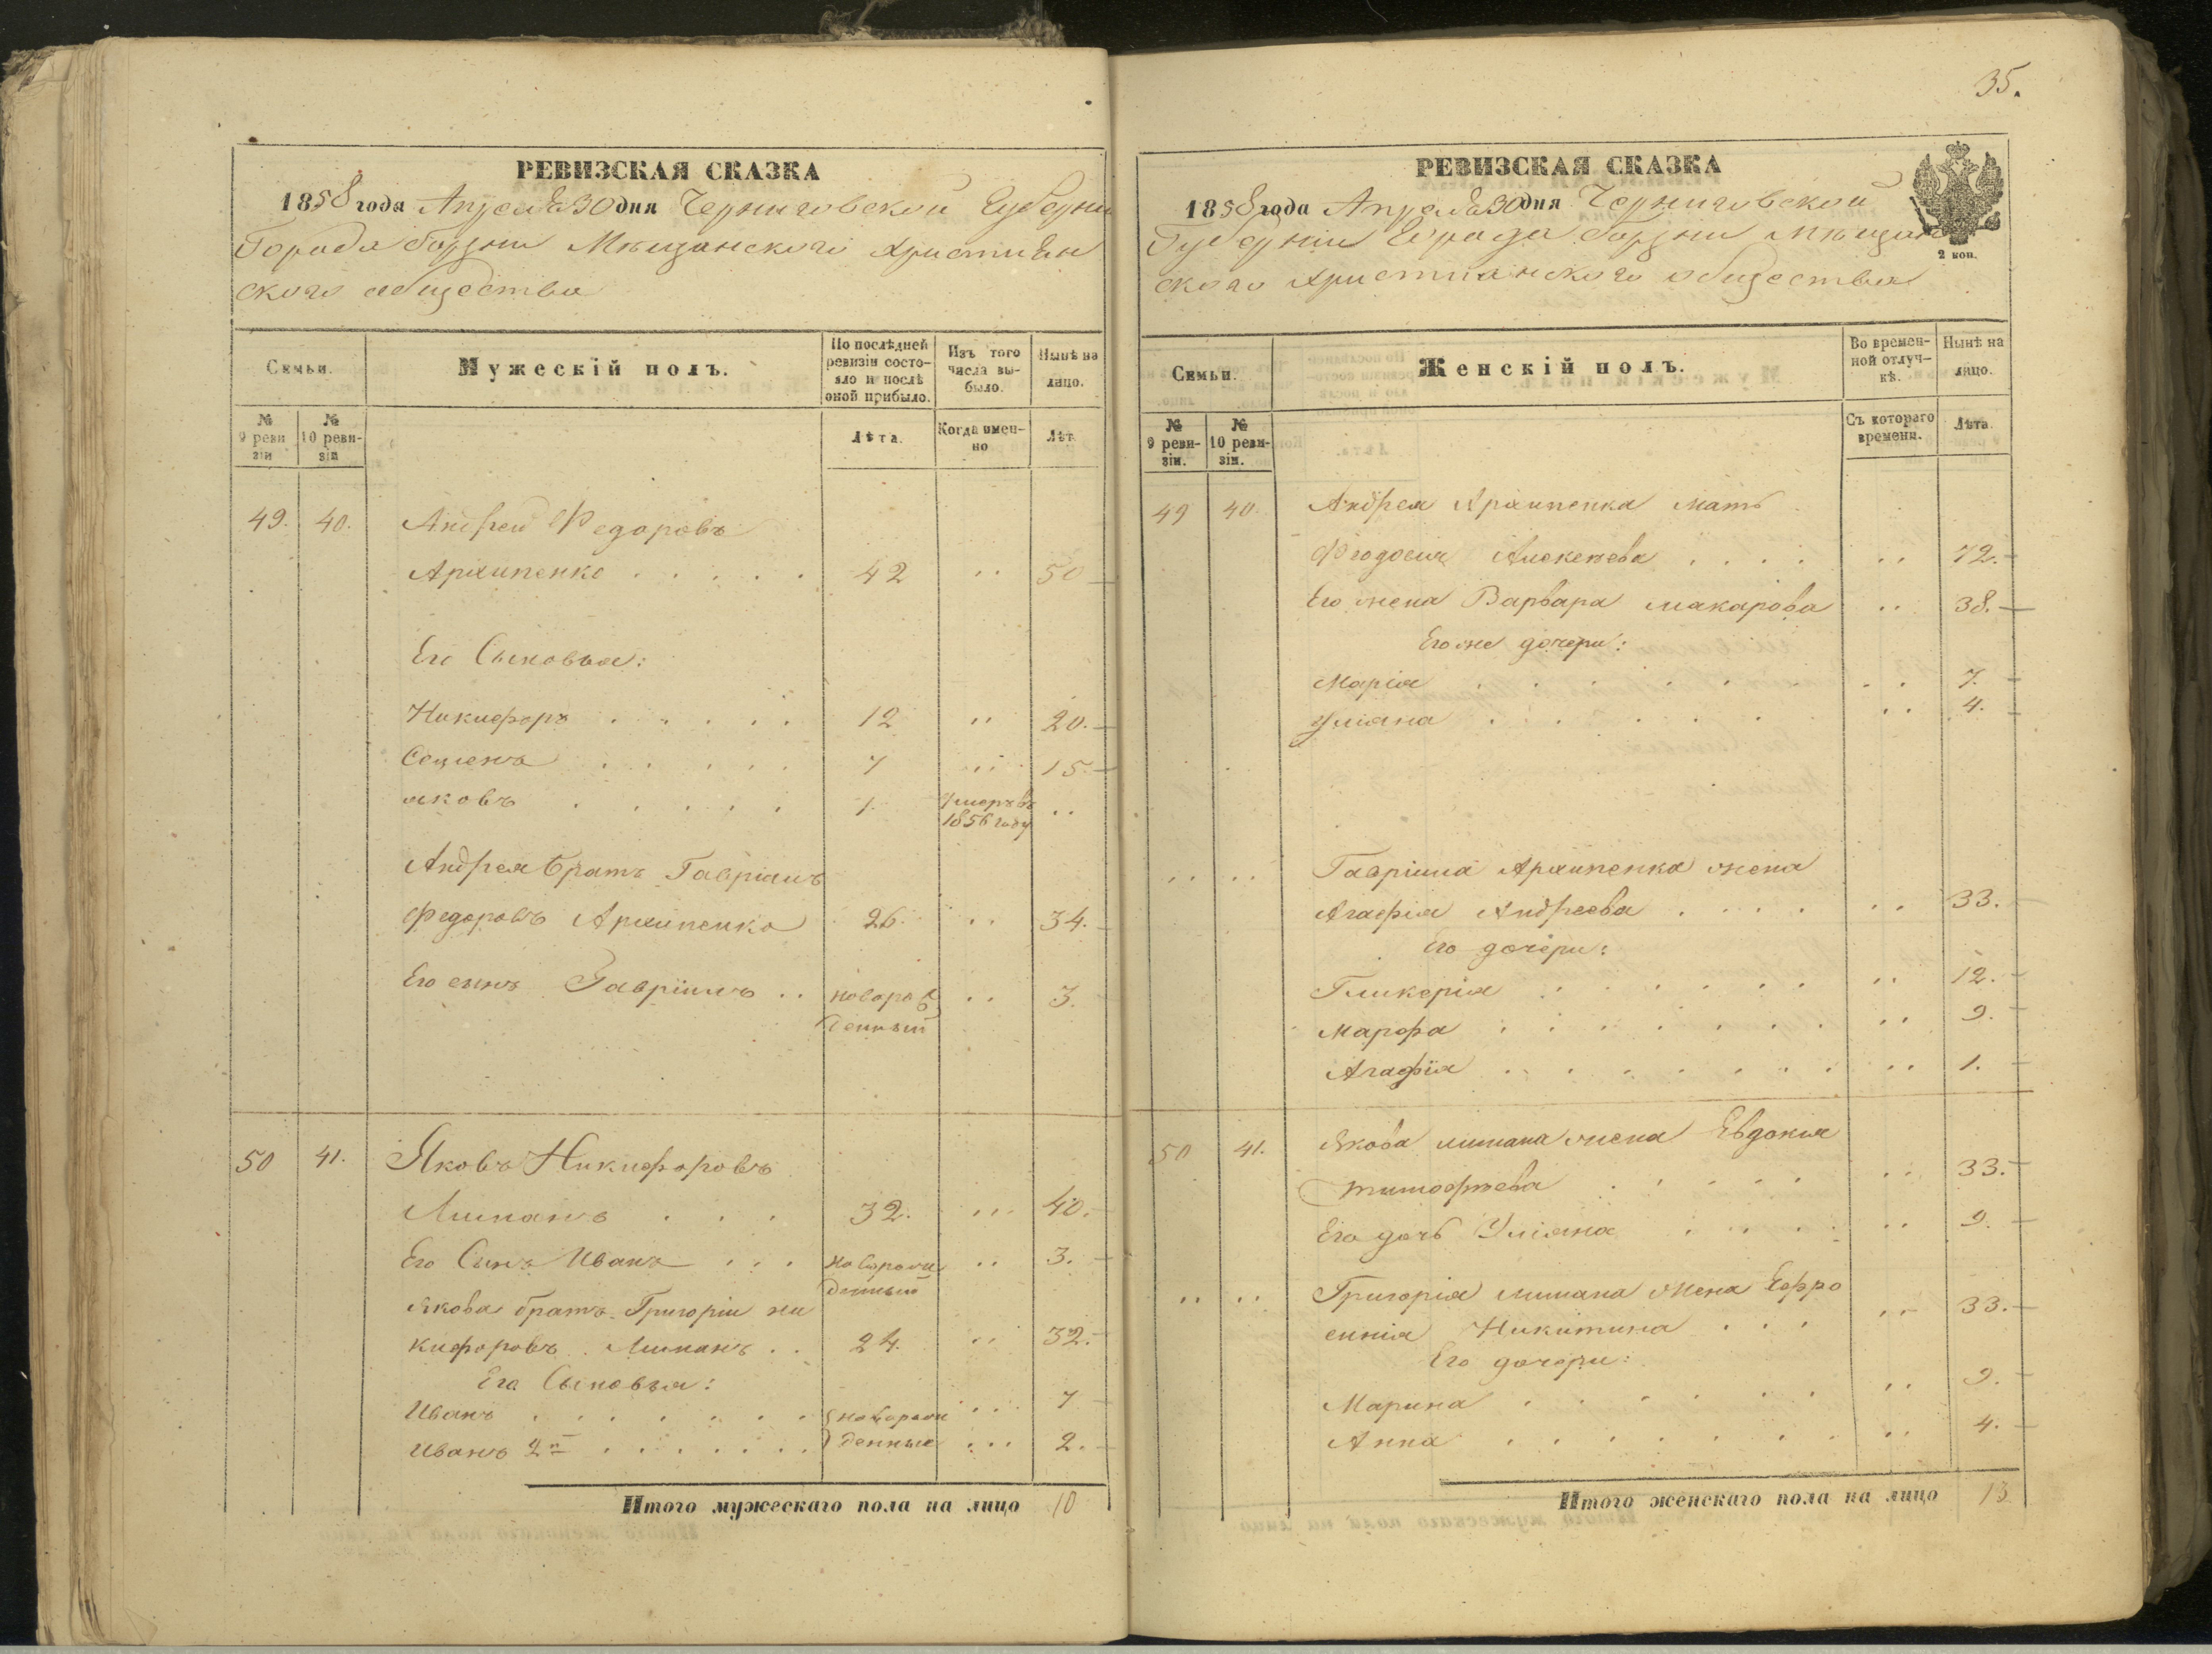 РЕВИЗСКАЯ СКАЗКА
1858 года Апреля 30 дня Черниговской Губерни
Города Борзни Мѣщанского Християн
ского общества
Семьи.
Мужескій полъ.
По послѣдней ревизіи состояло и послѣ оной прибыло.
Изъ того числа выбыло.
Нынѣ на лицо.
№ 9 ревизіи
№ 10 ревизіи
Лѣта.
Когда именно
Лѣт.
49. 40. Андрей Федоровъ
Архипенко . . . . . 42 ,, 50
Его Сыновья:
Никифоръ . . . . . 12 ,, 20.
Семенъ . . . . . 7 ... 15.
Яковъ . . . . . 1. Умеръ въ 1856 году ..
Андрея братъ Гавріилъ
Федоровъ Архипенко 26. .. 34.
Его сынъ Гавріилъ .. новорож
денный .. 3.
50 41. Яковъ Никифоровъ
Лиманъ . . . 32. ... 40.
Его Сынъ Иванъ . . . новорож
денный .. 3.
Якова братъ Григорій Ни
кифоровъ Лиманъ . . 24. .. 32.
Его Сыновья:
Иванъ . . . . . . . новорож ... 7
Иванъ 2й . . . . . . . денные ... 2.
Итого мужескаго пола на лицо 10
35.
РЕВИЗСКАЯ СКАЗКА
1858 года Апреля 30 дня Черниговской
Губерніи Города Борзни Мѣщан
ского Христианского общества
2 коп.
Семьи.
Женскій полъ.
Во временной отлучкѣ.
Нынѣ на лицо.
№ 9 ревизіи.
№ 10 ревизіи.
Съ котораго времени.
Лѣта
49 40. Андрея Архипенка мать
Феодосия Алексеева . . . . .. 72.
Его жена Варвара Макарова .. 38.
Его же дочери:
Марія . . . . . . . .. 7.
Уліана . . . . . . .. 4.
.. .. Гавріила Архипенка жена
Агафія Андреева . . . . .. 33.
Его дочери:
Гликерія . . . . . . .. 12.
Марфа . . . . . . . .. 9.
Агафія . . . . . . . .. 1.
50 41. Якова Лимана жена Евдокия
Тимофѣева . . . . . .. 33.
Его дочь Уліана . . . . .. 9.
.. .. Григорія Лимана жена Ефро
синія Никитина . . . .. 33.
Его дочери:
Марина . . . . . . .. 9.
Анна . . . . . . . .. 4.
Итого женскаго пола на лицо 13